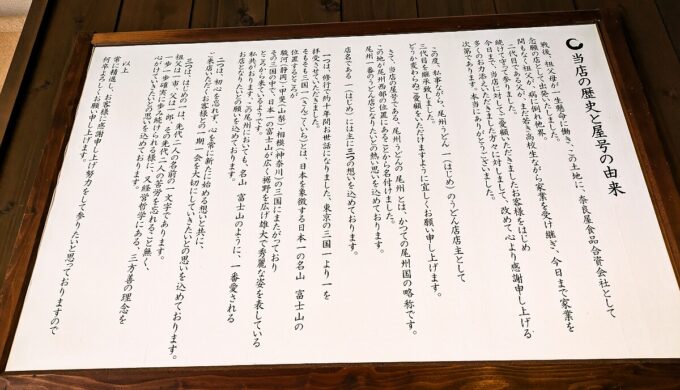 当店の歴史と屋号の由来
戦後、祖父母が一生懸命に働き、この土地に、奈良屋食品合資会社として
念願の店として出発致しました。
間もなく祖父もの病に倒れ他界。
二代目である父が、まだ若き高校生ながら家業を受け継ぎ、今日まで家業を
続けて守って参りました。
今日まで、当店に対してご愛顧いただきましたお客様をはじめ
多くのお力添えいただきました方々に対しまして、改めて心より感謝申し上げる
次第であります。本当にありがとうございました。
この度、私事ながら、尾州うどん 一(はじめ)のうどん店店主として
三代目を継承致しました。
どうか変わらぬご愛顧をいただけますように宜しくお願い申し上げます。
さて、当店の屋号である、尾州うどんの尾州 とは、かつての尾州国の略称です。
この地が尾州西部の位置にあることから名付けました。
尾州一番のうどん店となりたいとの熱い思いを込めております。
店名である一(はじめ)には主に三つの想いを込めております。
一つは、修行で約十年間お世話になりました、東京の三国一より一を
拝受させていただきました。
そもそも三国一(さんごくいち)とは、日本を象徴する日本一の名山 富士山の
位置するところが
駿河(静岡)・甲斐(山梨)・相模(神奈川)の三国にまたがっており
その三国の中で、日本一の富士山が広く裾野を広げ雄大で秀麗な姿を表している
ところから来ているようです。
私共がおります、この尾州においても、名山 富士山のように、一番愛される
お店となりたいとの願いを込めております。
二つは、初心を忘れず、心を常に新たに始める想いと共に、
ご来店いただくお客様との一期一会を大切にしていきたいとの思いを込めております。
三つは、はじめの一は、先代二人の名前の一文字であります。
祖父は一市、父は一郎、その先代二人の苦労を忘れること無く、
一歩一歩確実に歩み続けられる様に、又経営哲学にある、三方善の理念を
心がけていきたいとの思いを込めております。
以上
常に精進し、お客様に感謝申し上げ努力をして参りたいと思っておりますので
何卒よろしくお願い申し上げます。